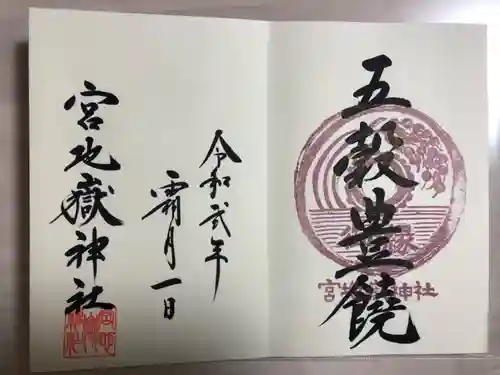 五穀豊饒
宮地嶽神社
令和弐年
霜月一日
宮地嶽神社